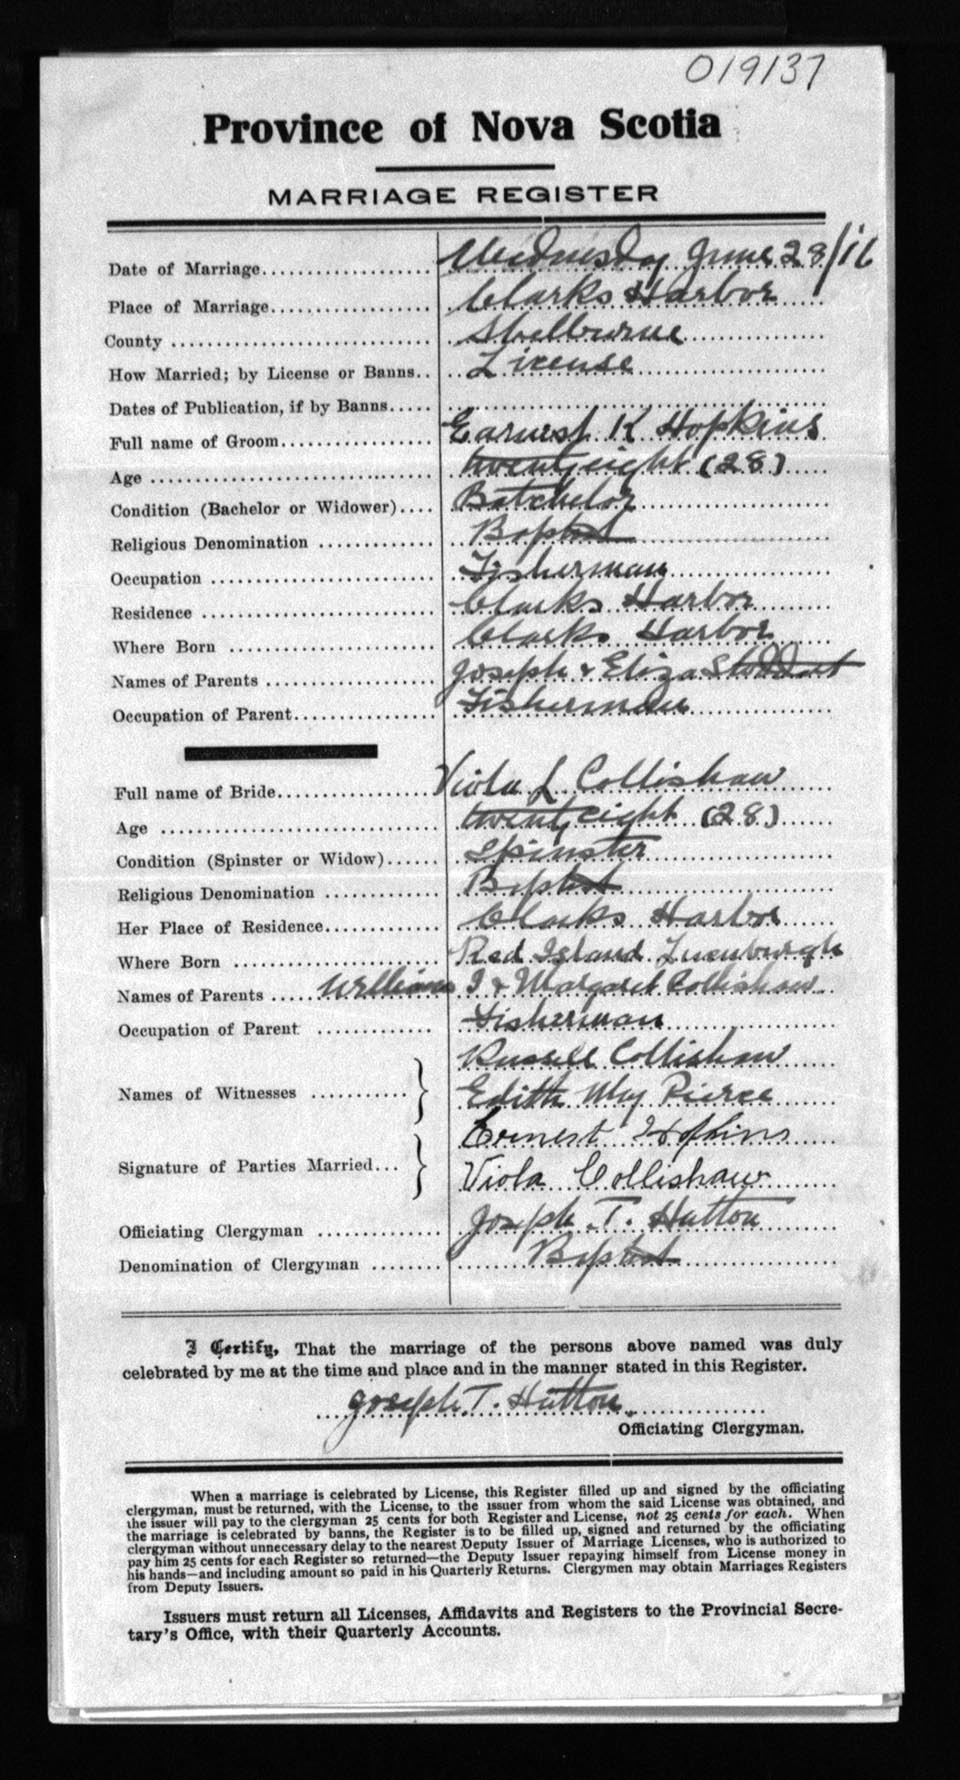 019137
Province of Nova Scotia
MARRIAGE REGISTER
Date of Marriage.................. Wednesday June 28/16
Place of Marriage.................. Clarks Harbor
County .............................. Shelburne
How Married; by License or Banns.. License
Dates of Publication, if by Banns.....
Full name of Groom................. Earnest K Hopkins
Age .................................. twenty eight (28)
Condition (Bachelor or Widower).... Batchelor
Religious Denomination ............. Baptist
Occupation .......................... Fisherman
Residence ........................... Clarks Harbor
Where Born ......................... Clarks Harbor
Names of Parents ................... Joseph & Eliza Stoddart
Occupation of Parent................ Fisherman
Full name of Bride.................. Viola L Collishaw
Age .................................. twenty eight (28)
Condition (Spinster or Widow)...... Spinster
Religious Denomination ............. Baptist
Her Place of Residence.............. Clarks Harbor
Where Born ......................... Red Island Lunenburgh
Names of Parents ..... William I & Margaret Collishaw
Occupation of Parent ............... Fisherman
Russell Collishaw
Names of Witnesses ........... } Edith May Pierce
Ernest Hopkins
Signature of Parties Married... } Viola Collishaw
Officiating Clergyman .............. Joseph T. Hutton
Denomination of Clergyman ........ Baptist
I Certify, That the marriage of the persons above named was duly
celebrated by me at the time and place and in the manner stated in this Register.
Joseph T. Hutton
Officiating Clergyman.
When a marriage is celebrated by License, this Register filled up and signed by the officiating
clergyman, must be returned, with the License, to the issuer from whom the said License was obtained, and
the issuer will pay to the clergyman 25 cents for both Register and License, not 25 cents for each. When
the marriage is celebrated by banns, the Register is to be filled up, signed and returned by the officiating
clergyman without unnecessary delay to the nearest Deputy Issuer of Marriage Licenses, who is authorized to
pay him 25 cents for each Register so returned—the Deputy Issuer repaying himself from License money in
his hands—and including amount so paid in his Quarterly Returns. Clergymen may obtain Marriages Registers
from Deputy Issuers.
Issuers must return all Licenses, Affidavits and Registers to the Provincial Secre-
tary's Office, with their Quarterly Accounts.